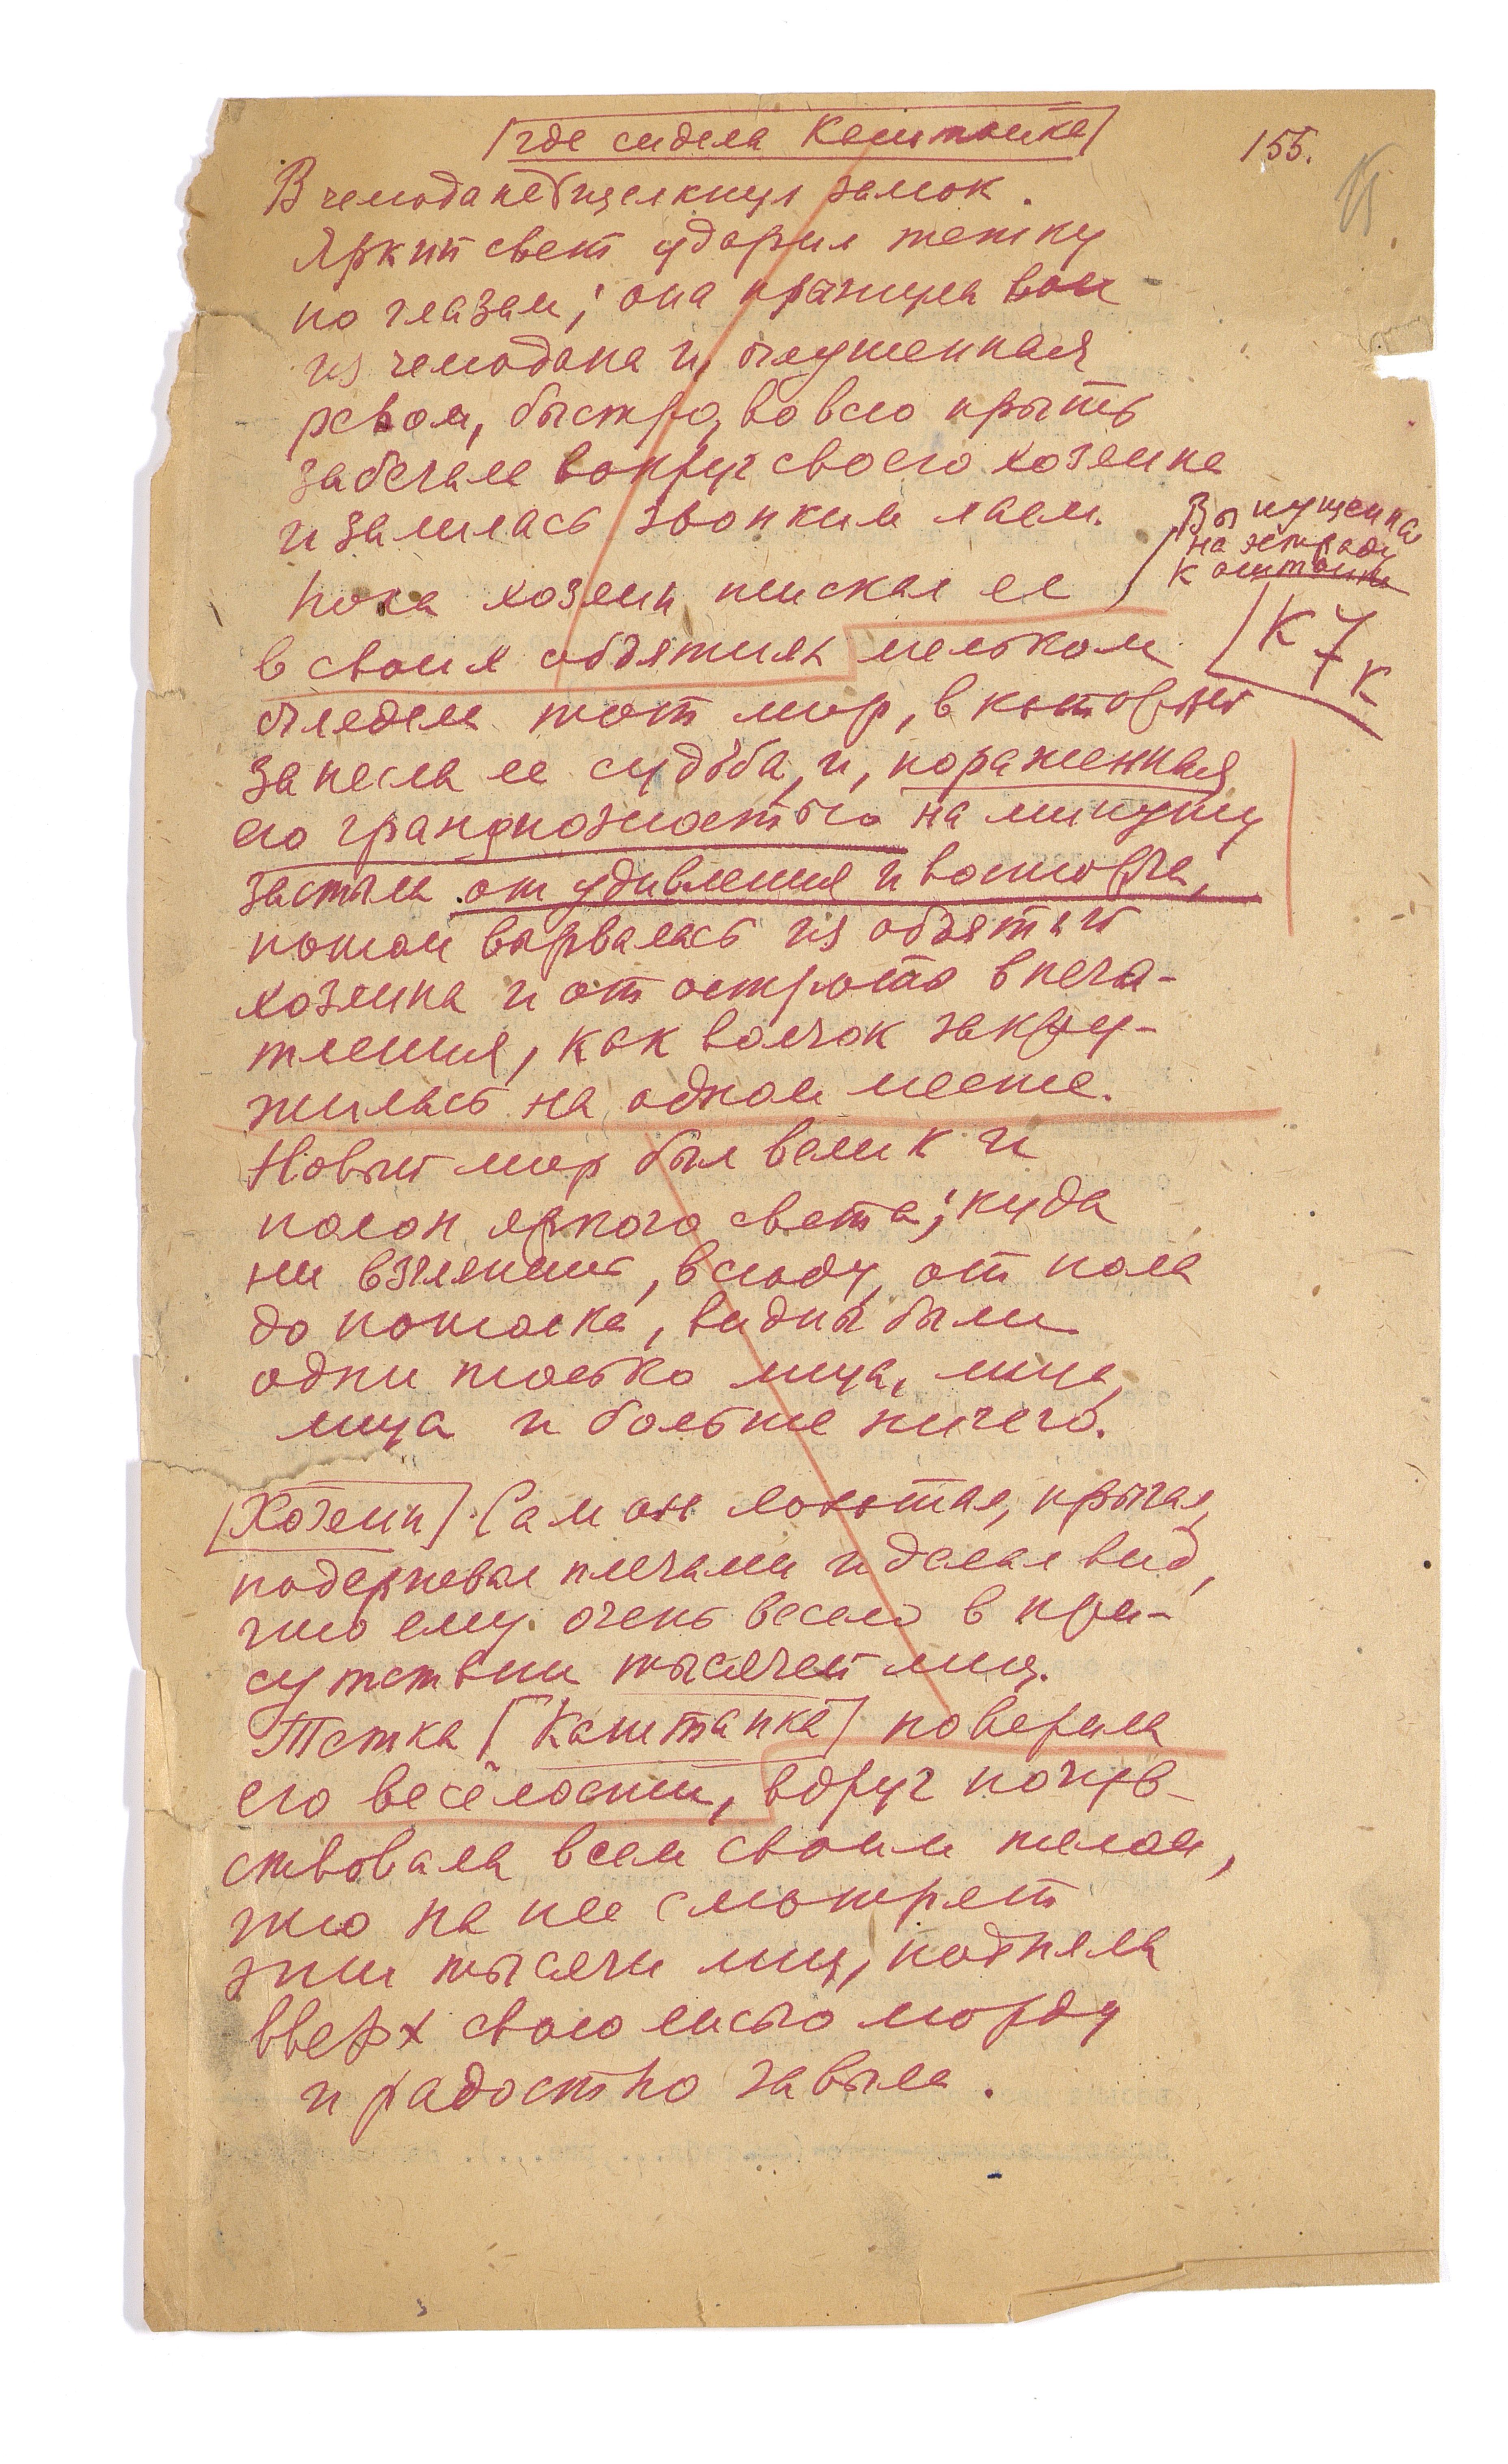 [где сидела Каштанка]
155.
В чемодане щелкнул замок.
Яркий свет ударил тетку
по глазам; она прыгнула вон
из чемодана и, оглушенная
ревом, быстро, во всю прыть
забегала вокруг своего хозяина
и залилась звонким лаем.
Выпущенная
на эстраду
Каштанка
Пока хозяин тискал ее
К
К
в своих объятиях мельком
оглядела тот мир, в который
занесла ее судьба, и, пораженная
его грандиозностью на минуту
застыла от удивления и восторга,
потом вырвалась из объятий
хозяина и от остроты впеча-
тления, как волчок закру-
жилась на одном месте.
Новый мир был велик и
полон яркого света; куда
ни взглянешь, всюду, от пола
до потолка, видны были
одни только лица, лица,
лица и больше ничего.
[Хозяин] Сам он хохотал, прыгал,
подергивал плечами и делал вид,
что ему очень весело в при-
сутствии тысячей лиц.
Тетка [Каштанка] поверила
его весёлости, вдруг почув-
ствовала всем своим телом,
что на нее смотрят
эти тысячи лиц, подняла
вверх свою лисью морду
и радостно завыла.